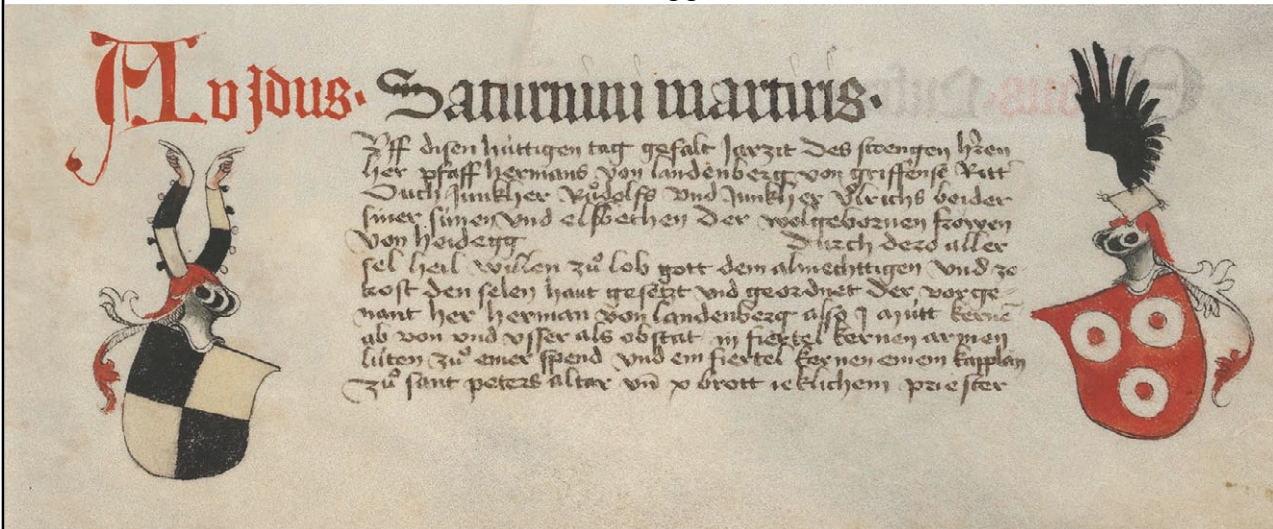 A v Jdus · Saturnini martiris ·
Vff disen hüttigen tag gefalt Jarzit des strengen hr̄en
her pfaff hermans von landenberg von griffense Ritt
Ouch Junkher Růdolfs vnd Junkher Vͦlrichs beider
siner sünen vnd elsbethen der wolgebornen frowen
von heidegg durch dero aller
sel heil willen zů lob gott dem almechttigen vnd ze
trost den selen haut gesetzt vnd geordnet der vorge-
nant her herman von landenberg also j mütt kernē
ab von vnd vsser als obstat iij fiertel kernen armen
lüten zů einer spend vnd ein fiertel kernen einem kapplan
zů sant peters altar vn̄ v brott ieklichem priester